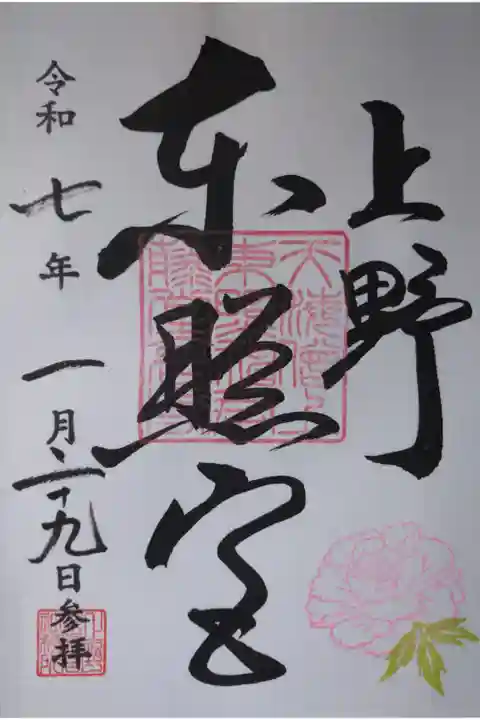 上野
東照宮
令和七年一月二十九日参拝